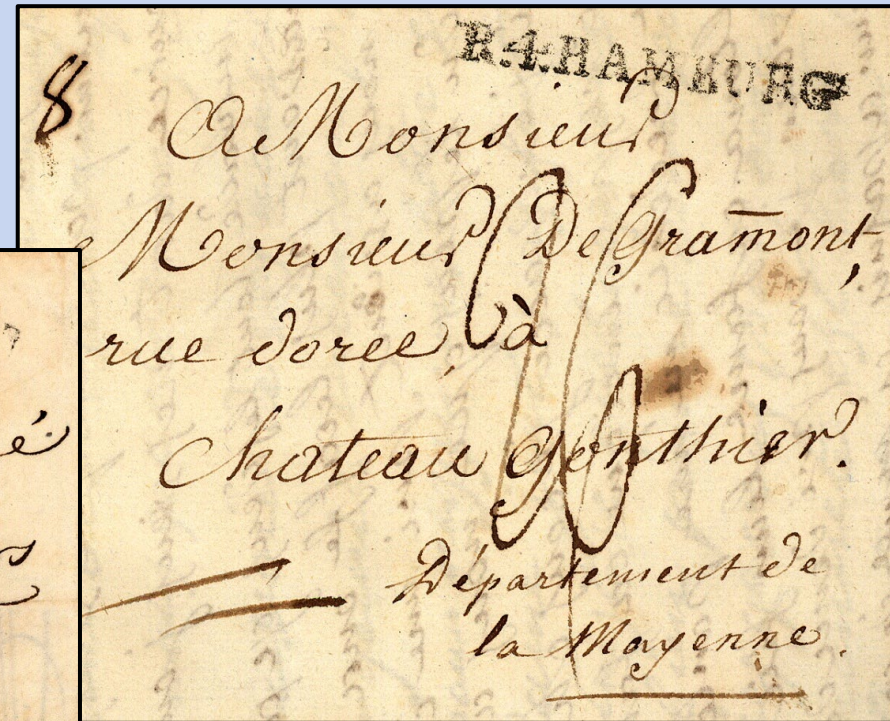 R.4.HAMBURG
8
A Monsieur
Monsieur De Gram̄ont,
rue dorée, à
Chateau gonthier.
Département de
la Mayenne.
é
s